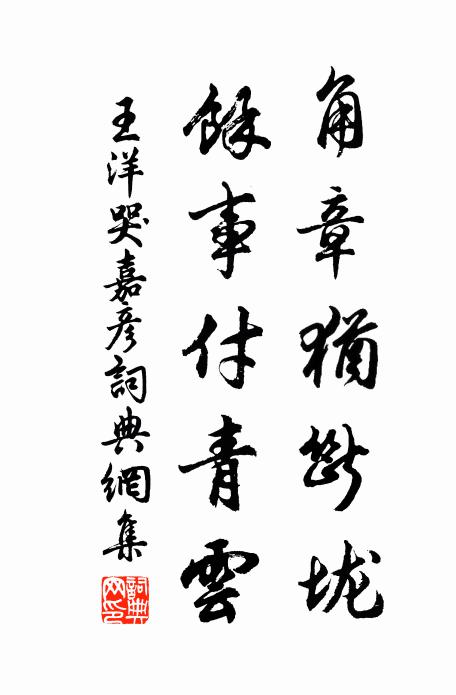 角章猶斷垅
餘事付青雲
王洋哭嘉彥詞典網集
詞典网印